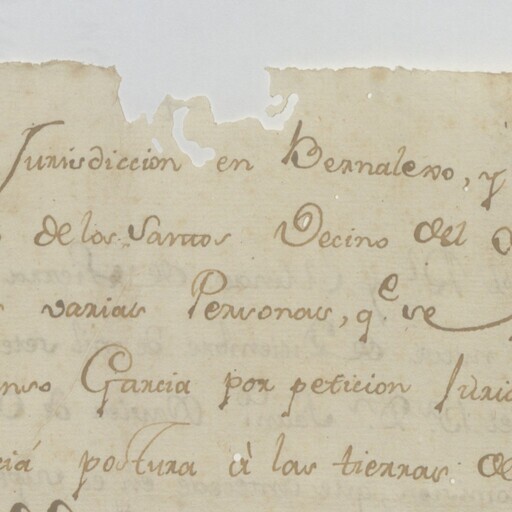 Jurisdiccion en Bernalero, y
de los Santos Vecino del
varias Personas, qe se
Garcia por peticion
postura à las tierras de